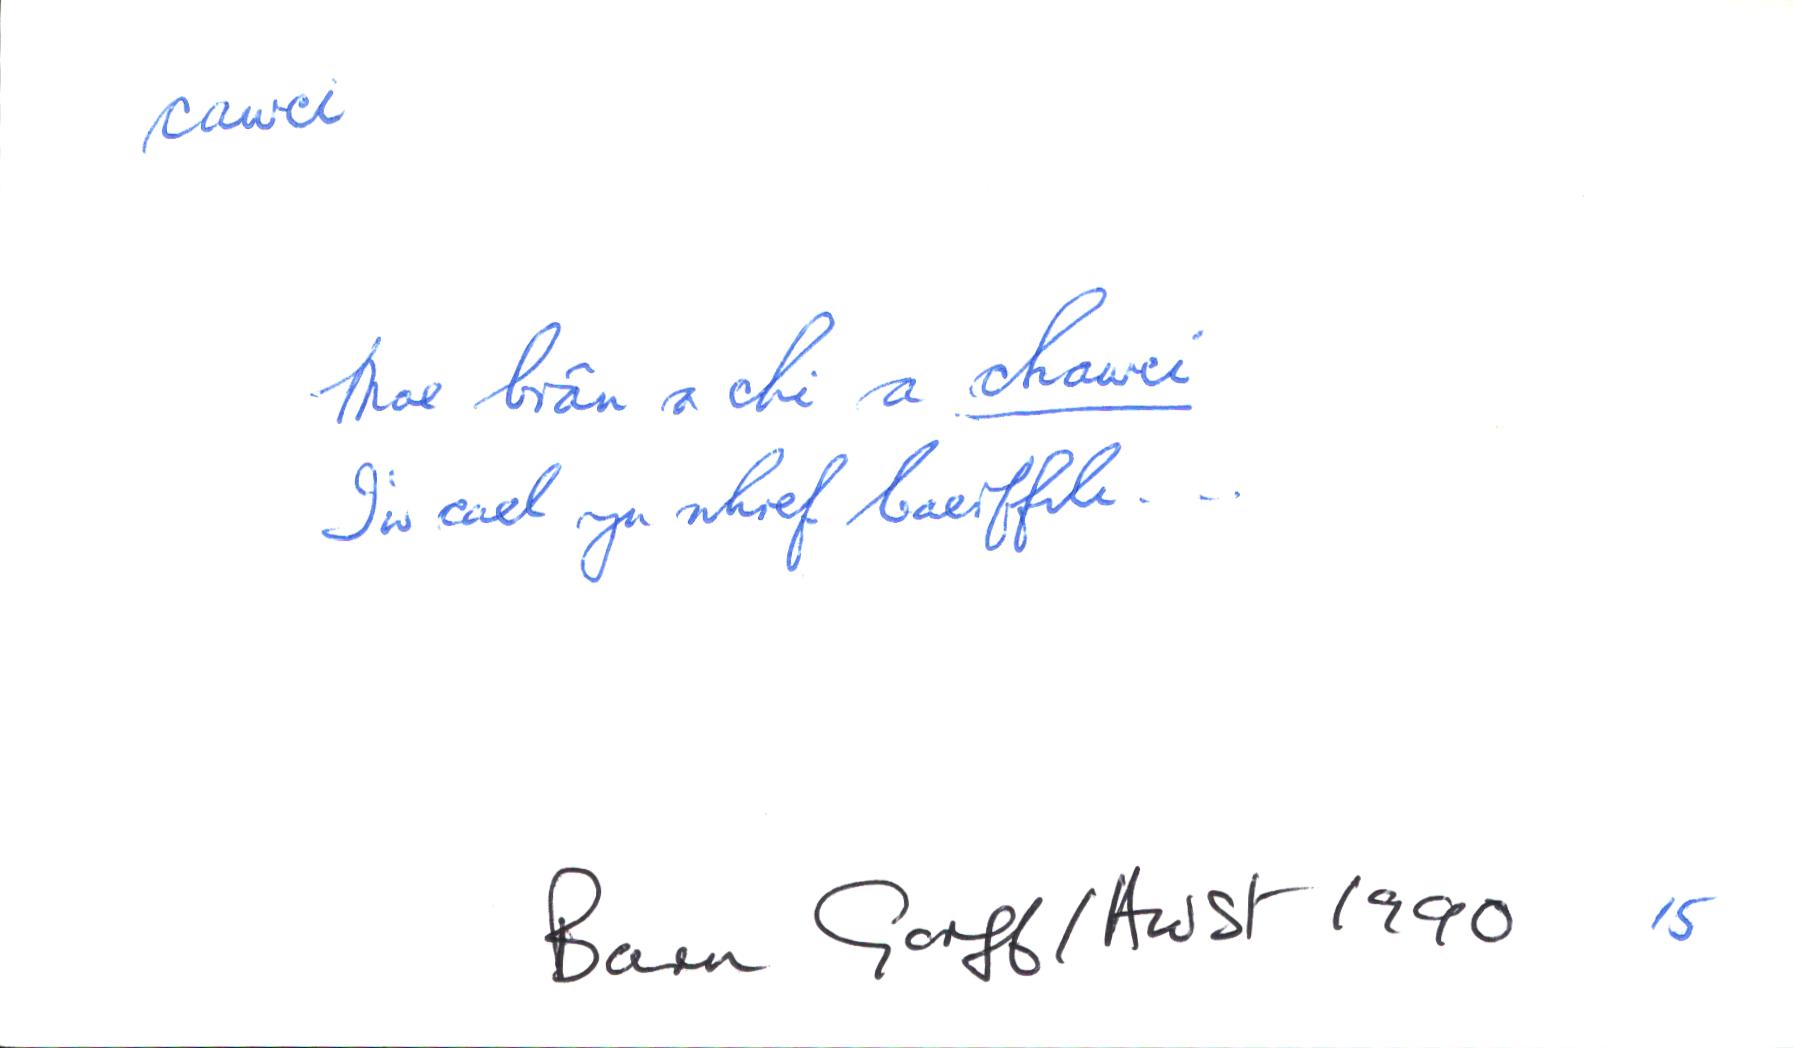 cawci
Mae brân a chi a chawci
I'w cael yn nhref Caerffili...
Barn Gorff/Awst 1990 15